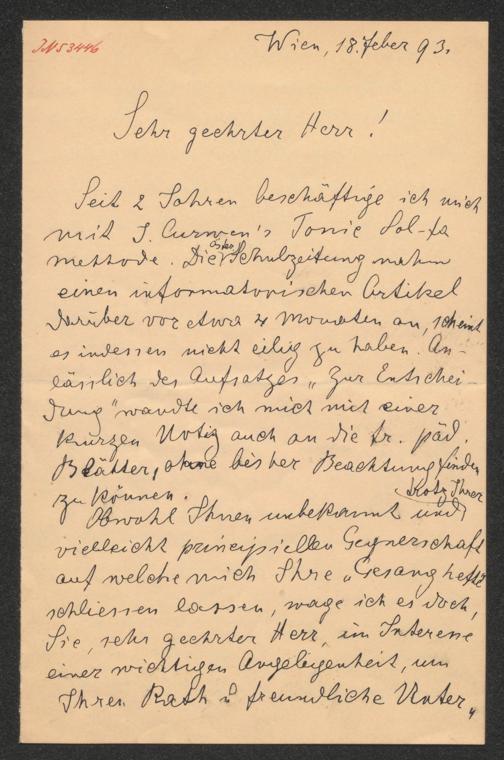 JN 53446
Wien, 18. Feber 93.
Sehr geehrter Herr!
Seit 2 Jahren beschäftige ich mich
mit J. Curwen's Tonic Sol-fa
methode. Die österr. Schulzeitung nahm
einen informatorischen Artikel
darüber vor etwa 4 Monaten an, scheint
es indessen nicht eilig zu haben. An-
lässlich des Aufsatzes „Zur Entschei-
dung" wandte ich mich mit einer
kurzen Notiz auch an die fr. päd.
Blätter, ohne bisher Beachtung finden
zu können.
Obwohl Ihnen unbekannt und trotz Ihrer
vielleicht principiellen Gegnerschaft
auf welche mich Ihre „Gesanghefte
schliessen lassen, wage ich es doch,
Sie, sehr geehrter Herr, im Interesse
einer wichtigen Angelegenheit, um
Ihren Rath u freundliche Unter„